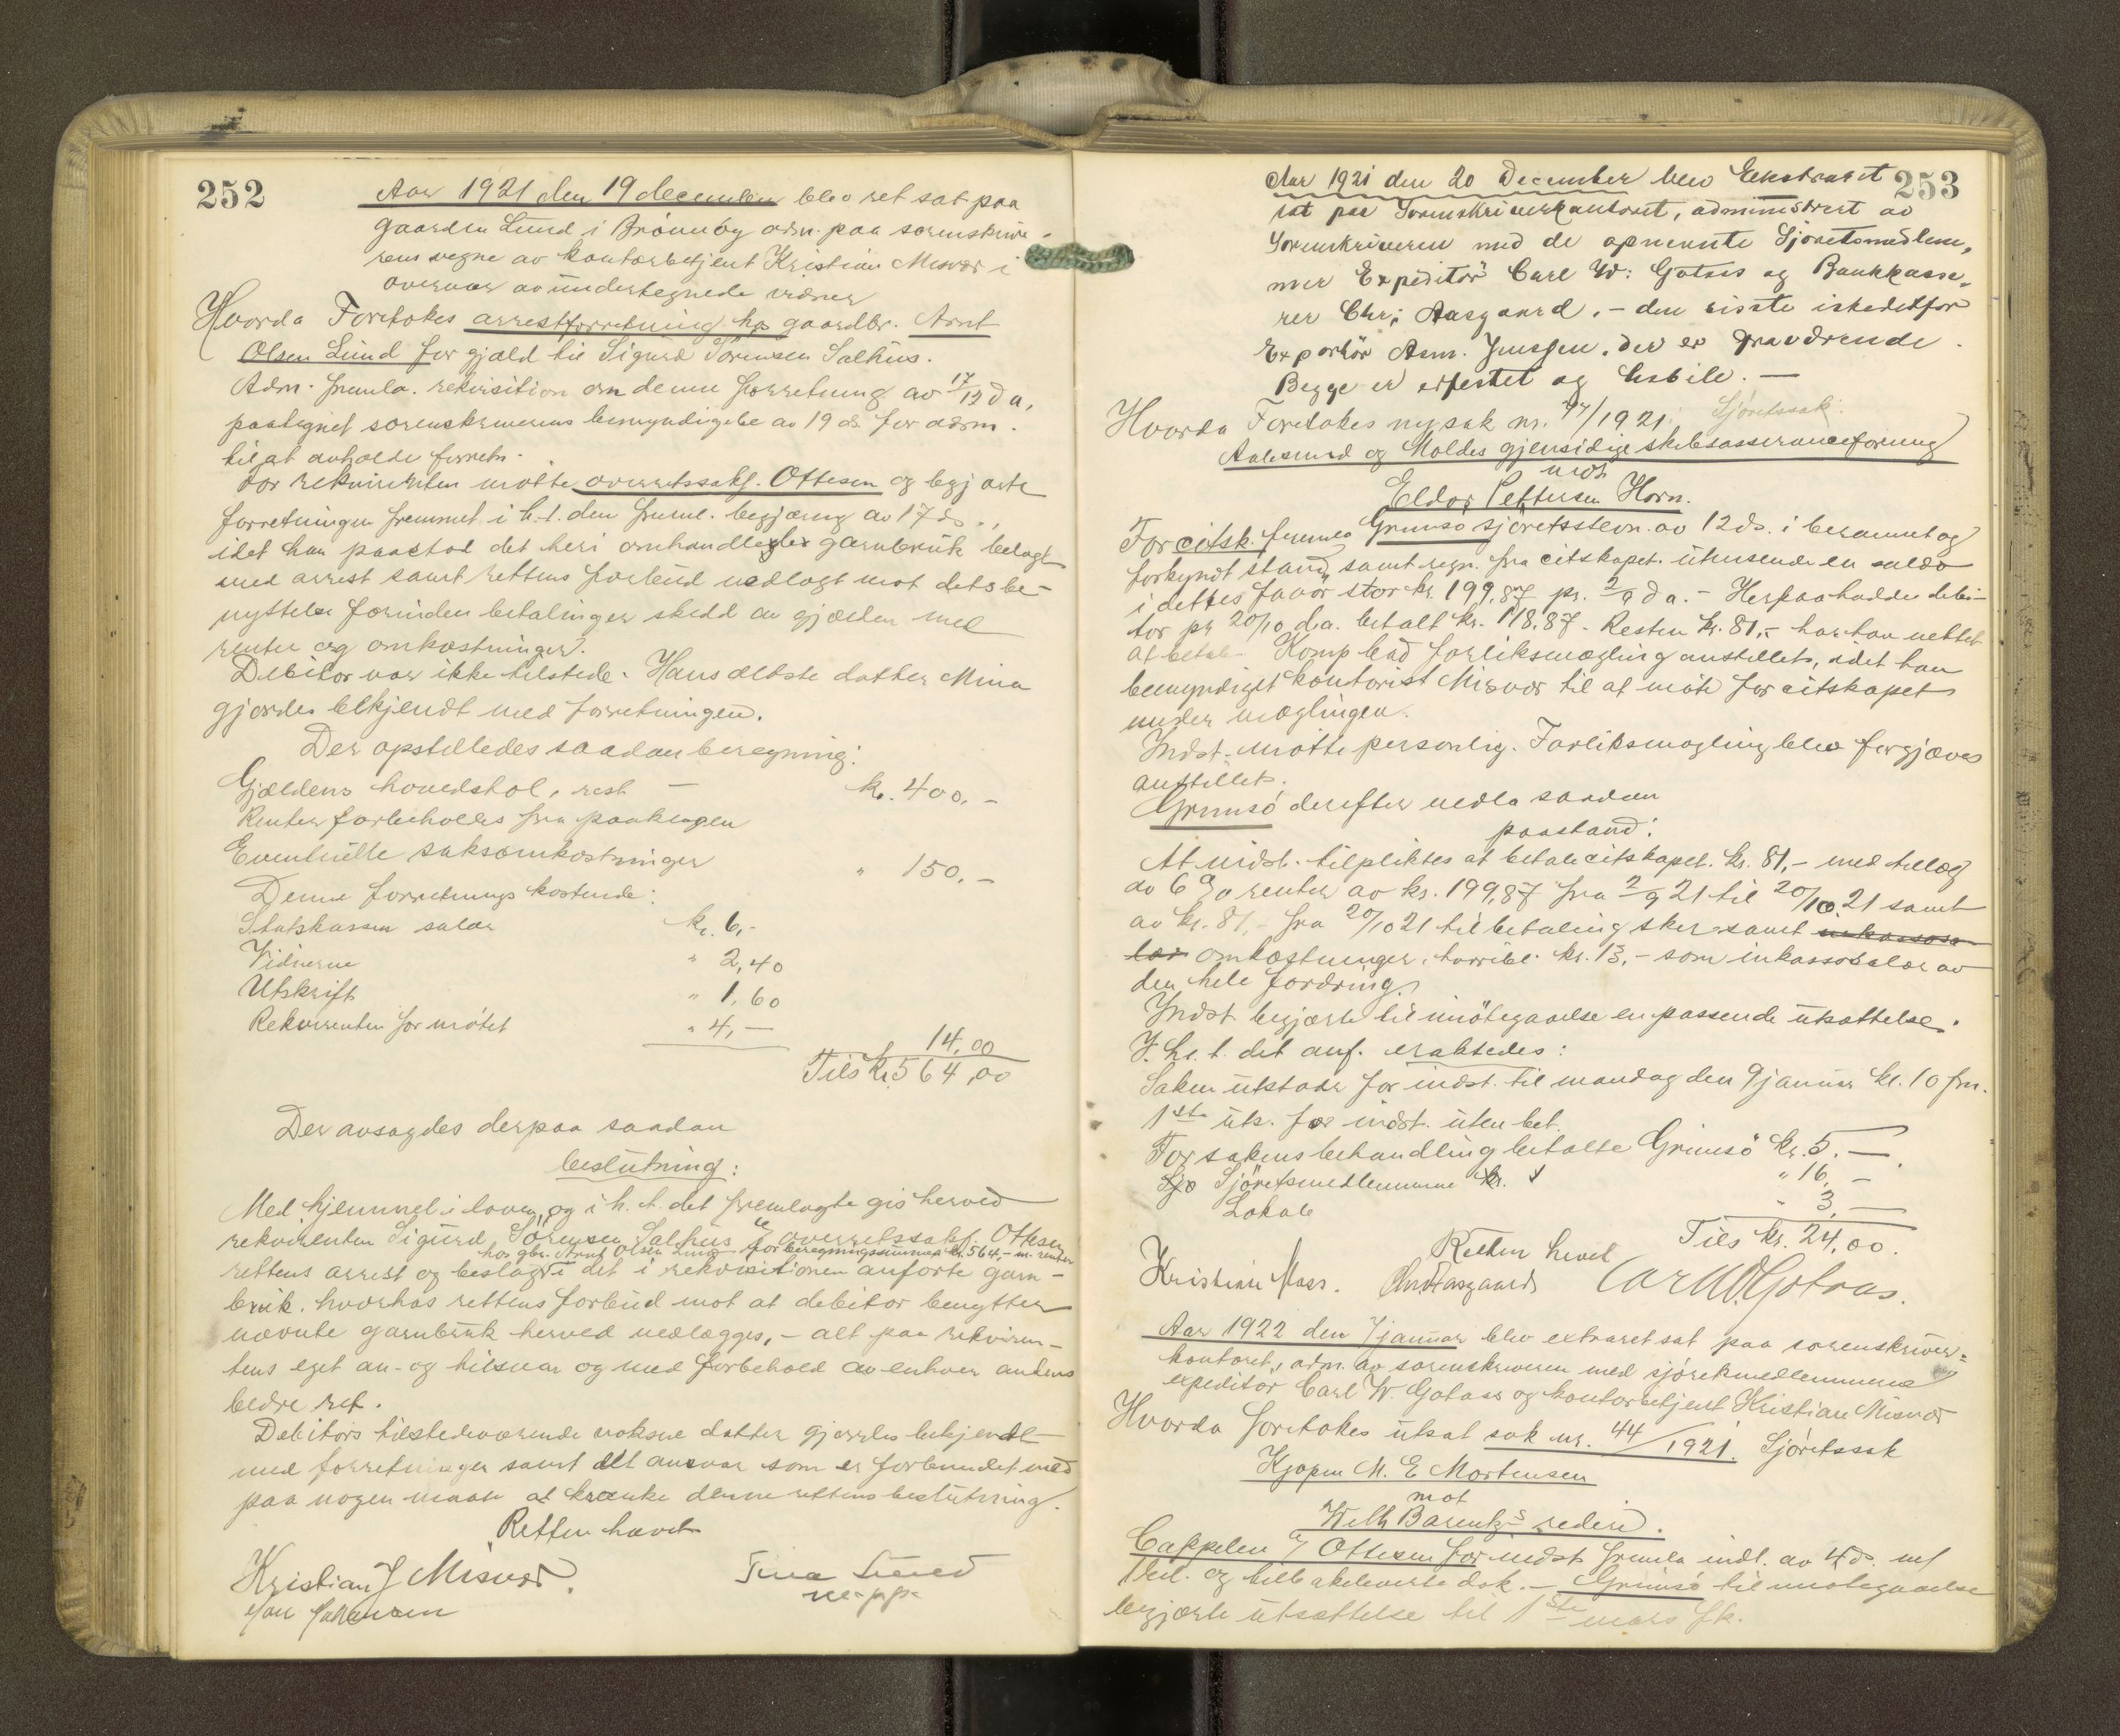 252
Aar 1921 den 19 december blev ret sat paa
gaarden Lund i Brønnöy adm. paa sorenskrive-
rens vegne av kontorbetjent Kristian Misvær i
overvær av undertegnede vidner
Hvorda Foretokes arrestforretning hos gaardbr. Arnt
Olsen Lund for gjæld til Sigurd Sörensen Salhus.
Adm. fremla. rekvisition om denne forretning av 17/12 d a,
paategnet sorenskriverens bemyndigelse av 19 ds for adm.
til at avholde forretn.
For rekvirenten mötte overretssakf. Ottesen og begjærte
forretningen fremmet i h.t. den freml. begjæring av 17 ds.,
idet han paastod det heri omhandlede garnbruk belagt
med arrest samt rettens forbud nedlagt mot dets be-
nyttelse forinden betalinger skedd av gjælden med
renter og omkostninger.
Debitor var ikke tilstede. Hans ældste datter Mina
gjordes bekjendt med forretningen.
Der opstilledes saadan beregning:
Gjældens hovedstol, rest — kr. 400.-
Renter forbeholdes fra paakragen
Eventuelle saksomkostninger " 150.-
Denne forretnings kostende:
Statskassen salær kr. 6,-
Vidnerne " 2,40
Utskrift " 1,60
Rekvirenten for mötet " 4,—
14,00
Tils kr. 564,00
Der avsagdes derpaa saadan
beslutning:
Med hjemmel i loven og i h. t. det fremlagte gis herved
rekvirenten Sigurd Sörensen Salhus v/ overretssakf. Ottesen
hos gbr. Arnt Olsen Lund for beregningssummen kr. 564,- m. renter
rettens arrest og beslag i det i rekvisitionen anförte garn-
bruk. hvorhos rettens forbud mot at debitor benytter
nævnte garnbruk herved nedlægges, - alt paa rekviren-
tens eget an- og tilsvar og med forbehold av enhver andens
bedre ret.
Debitors tilstedeværende voksne datter gjordes bekjendt
med forretningen samt det ansvar som er forbundet med
paa nogen maate at krænke denne rettens beslutning.
Retten hævet
Kristian J Misvær.
Tina Lund
m. p. p.
Johansen
253
Aar 1921 den 20 December blev Ekstraret
sat paa Sorenskriverkontoret, administrert av
Sorenskriveren med de opnevnte Sjöretsmedlem,
mer Expeditör Carl W: Gotaas og Bankkasse,
rer Chr; Aasgaard. - den sisste istedetfor
Exportör Asm. Jenssen. der er fraværende.
Begge er edfestet og habile. —
Hvorda Foretokes ny sak nr. 47/1921. Sjöretssak.
Aalesund og Moldes gjensidige skibsassuranceforening
mot
Eldor Pettersen Horn.
For citsk. fremla Grimsö sjöretsstevn. av 12 ds. i berammet og
forkyndt stand, samt regn. fra citskapet. utvisende en saldo
i dettes favör stor kr. 199,87 pr. 2/9 d a. - Herpaa hadde debi-
tor pr 20/10 d.a. betalt kr. 118.87. Resten kr. 81,- har han nektet
at betale. Komp bad forliksmægling anstillet, idet han
bemyndiget kontorist Misvær til at möte for citskapet
under mæglingen.
Indst. mötte personlig. Forliksmægling blev forgjæves
anstillet.
Grimsö derefter nedla saadan
paastand:
At indst. tilpliktes at betale citskapet. kr. 81,- med tillæg
av 6 % renter av kr. 199,87 fra 2/9 21 til 20/10.21 samt
av kr. 81,- fra 20/10 21 til betaling sker samt inkassosa-
lær omkostninger, hvoribl. kr. 13,- som inkassosalær av
den hele fordring.
Indst. begjærte til imötegaaelse en passende utsættelse.
I. h. t. det anf. eragtedes:
Saken utstaar for indst. til mandag den 9 januar kl. 10 fm.
1ste uts. for indst. uten bet.
For sakens behandling betalte Grimsö kr. 5.—
Sjö Sjöretsmedlemmene kr. " 16,—
Lokale " 3,—
Tils kr. 24,00.
Retten hævet
Kristian Moss. Chr Aasgaard Carl W. Gotaas.
Aar 1922 den 7 januar blev extraret sat paa sorenskriver-
kontoret, adm. av sorenskriveren med sjöretsmedlemmene
expeditör Carl W. Gotaas og kontorbetjent Kristian Misvær
Hvorda foretokes utsat sak nr. 44/1921. Sjöretssak
Kjøpm M. E Mortensen
mot
Wilh Barentz's rederi.
Cappelen v/ Ottesen for indst fremla indl. av 4 ds. m/
1 bil. og tilbakeleverte dok. - Grimsö til imötegaaelse
begjærte utsættelse til 1ste mars fk.